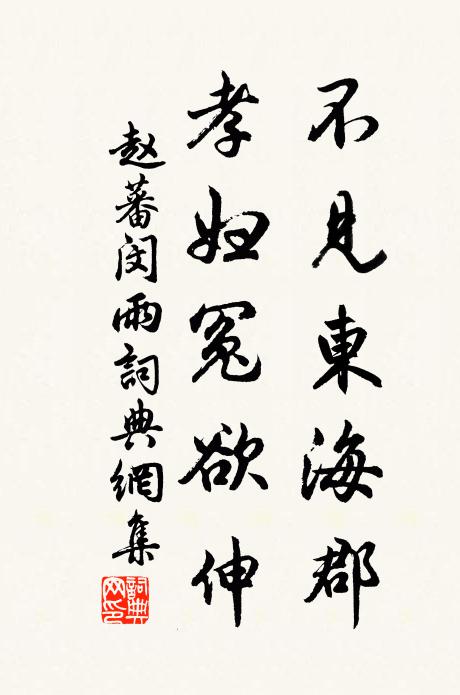 不見東海郡
孝妇冤欲伸
赵蕃閔雨詞典網集
詞典网印